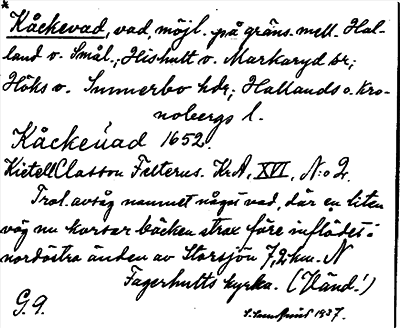 Kåckevad, vad, möjl. på gräns. mell. Hal-
land o. Smål.; Hishult o. Markaryd sr;
Höks o. Sunnerbo hdr; Hallands o. Kro-
nobergs l.
Kåckeuad 1652.
Kietell Classon Felterus. KrA, XVI, N:o 2.
Trol. avsåg namnet något vad, där en liten
väg nu korsar bäcken strax före inflödet i
nordöstra änden av Storsjön 7,2 km. N
Fagerhults kyrka. (Vänd!)
G. 9.
1937.